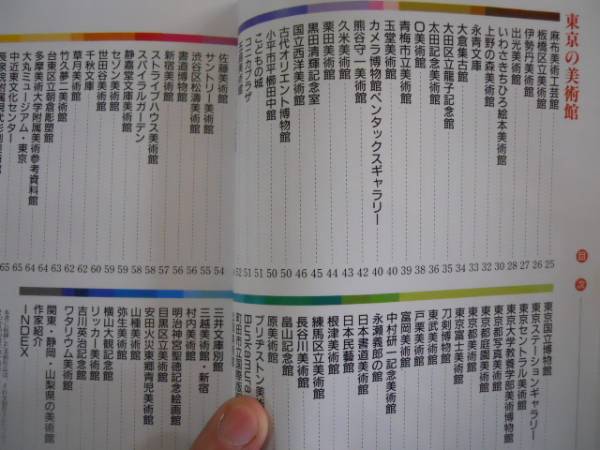 東京の美術館
目次
麻布美術工芸館 25
板橋区立美術館 26
伊勢丹美術館 27
出光美術館 28
いわさきちひろ絵本美術館 30
上野の森美術館 30
永青文庫 32
大倉集古館 34
大田区立龍子記念館 35
太田記念美術館 36
O美術館 38
青梅市立美術館 39
玉堂美術館 40
カメラ博物館ペンタックスギャラリー 40
熊谷守一美術館 42
久米美術館 44
栗田美術館 44
黒田清輝記念室 45
国立西洋美術館 46
古代オリエント博物館 50
小平市平櫛田中館 50
こどもの城 51
コニカプラザ 51
52
東京国立博物館
東京ステーションギャラリー
東京セントラル美術館
東京大学教養学部美術博物館
東京都写真美術館
東京都庭園美術館
東京都美術館
東京富士美術館
刀剣博物館
東武美術館
戸栗美術館
富岡美術館
中村研一記念美術館
永瀬義郎の館
日本書道美術館
日本民藝館
根津美術館
練馬区立美術館
長谷川美術館
畠山記念館
原美術館
ブリヂストン美術館
Bunkamura
町田市立国際版
佐藤美術館 54
サントリー美術館 54
渋谷区松濤美術館 55
書道博物館 56
新宿美術館 57
ストライプハウス美術館 58
スパイラルガーデン 58
静嘉堂文庫美術館 59
セゾン美術館
世田谷美術館 60
千秋文庫
草月美術館 62
竹久夢二美術館 62
台東区立朝倉彫塑館 63
多摩美術大学附属美術参考資料館 64
大丸ミュージアム・東京 64
中近東文化センター 65
長泉院附属現代彫刻美術館 65
三井文庫別館
三越美術館・新宿
村内美術館
明治神宮聖徳記念絵画館
目黒区美術館
安田火災東郷青児美術館
山種美術館
弥生美術館
横山大観記念館
リッカー美術館
吉川英治記念館
ワタリウム美術館
関東・静岡・山梨県の美術館
作家紹介
INDEX